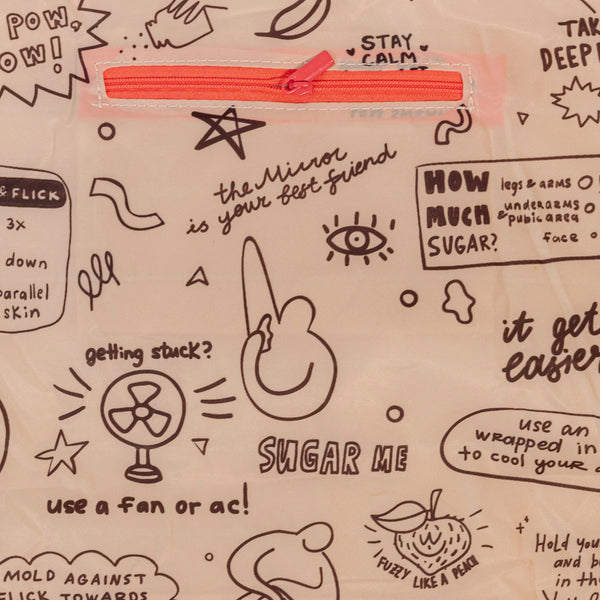 POW,
OW!
STAY
CALM
TAK
DEEP
& FLICK
3x
down
parallel
skin
the Mirror
is your best friend
HOW MUCH SUGAR?
legs & ARMS
underarms & pubic area
face
it get
easier
getting stuck?
use a fan or ac!
SUGAR ME
use an
wrapped in
to cool your
FUZZY LIKE A PEACH
MOLD AGAINST
FLICK TOWARDS
Hold you
and b
in th